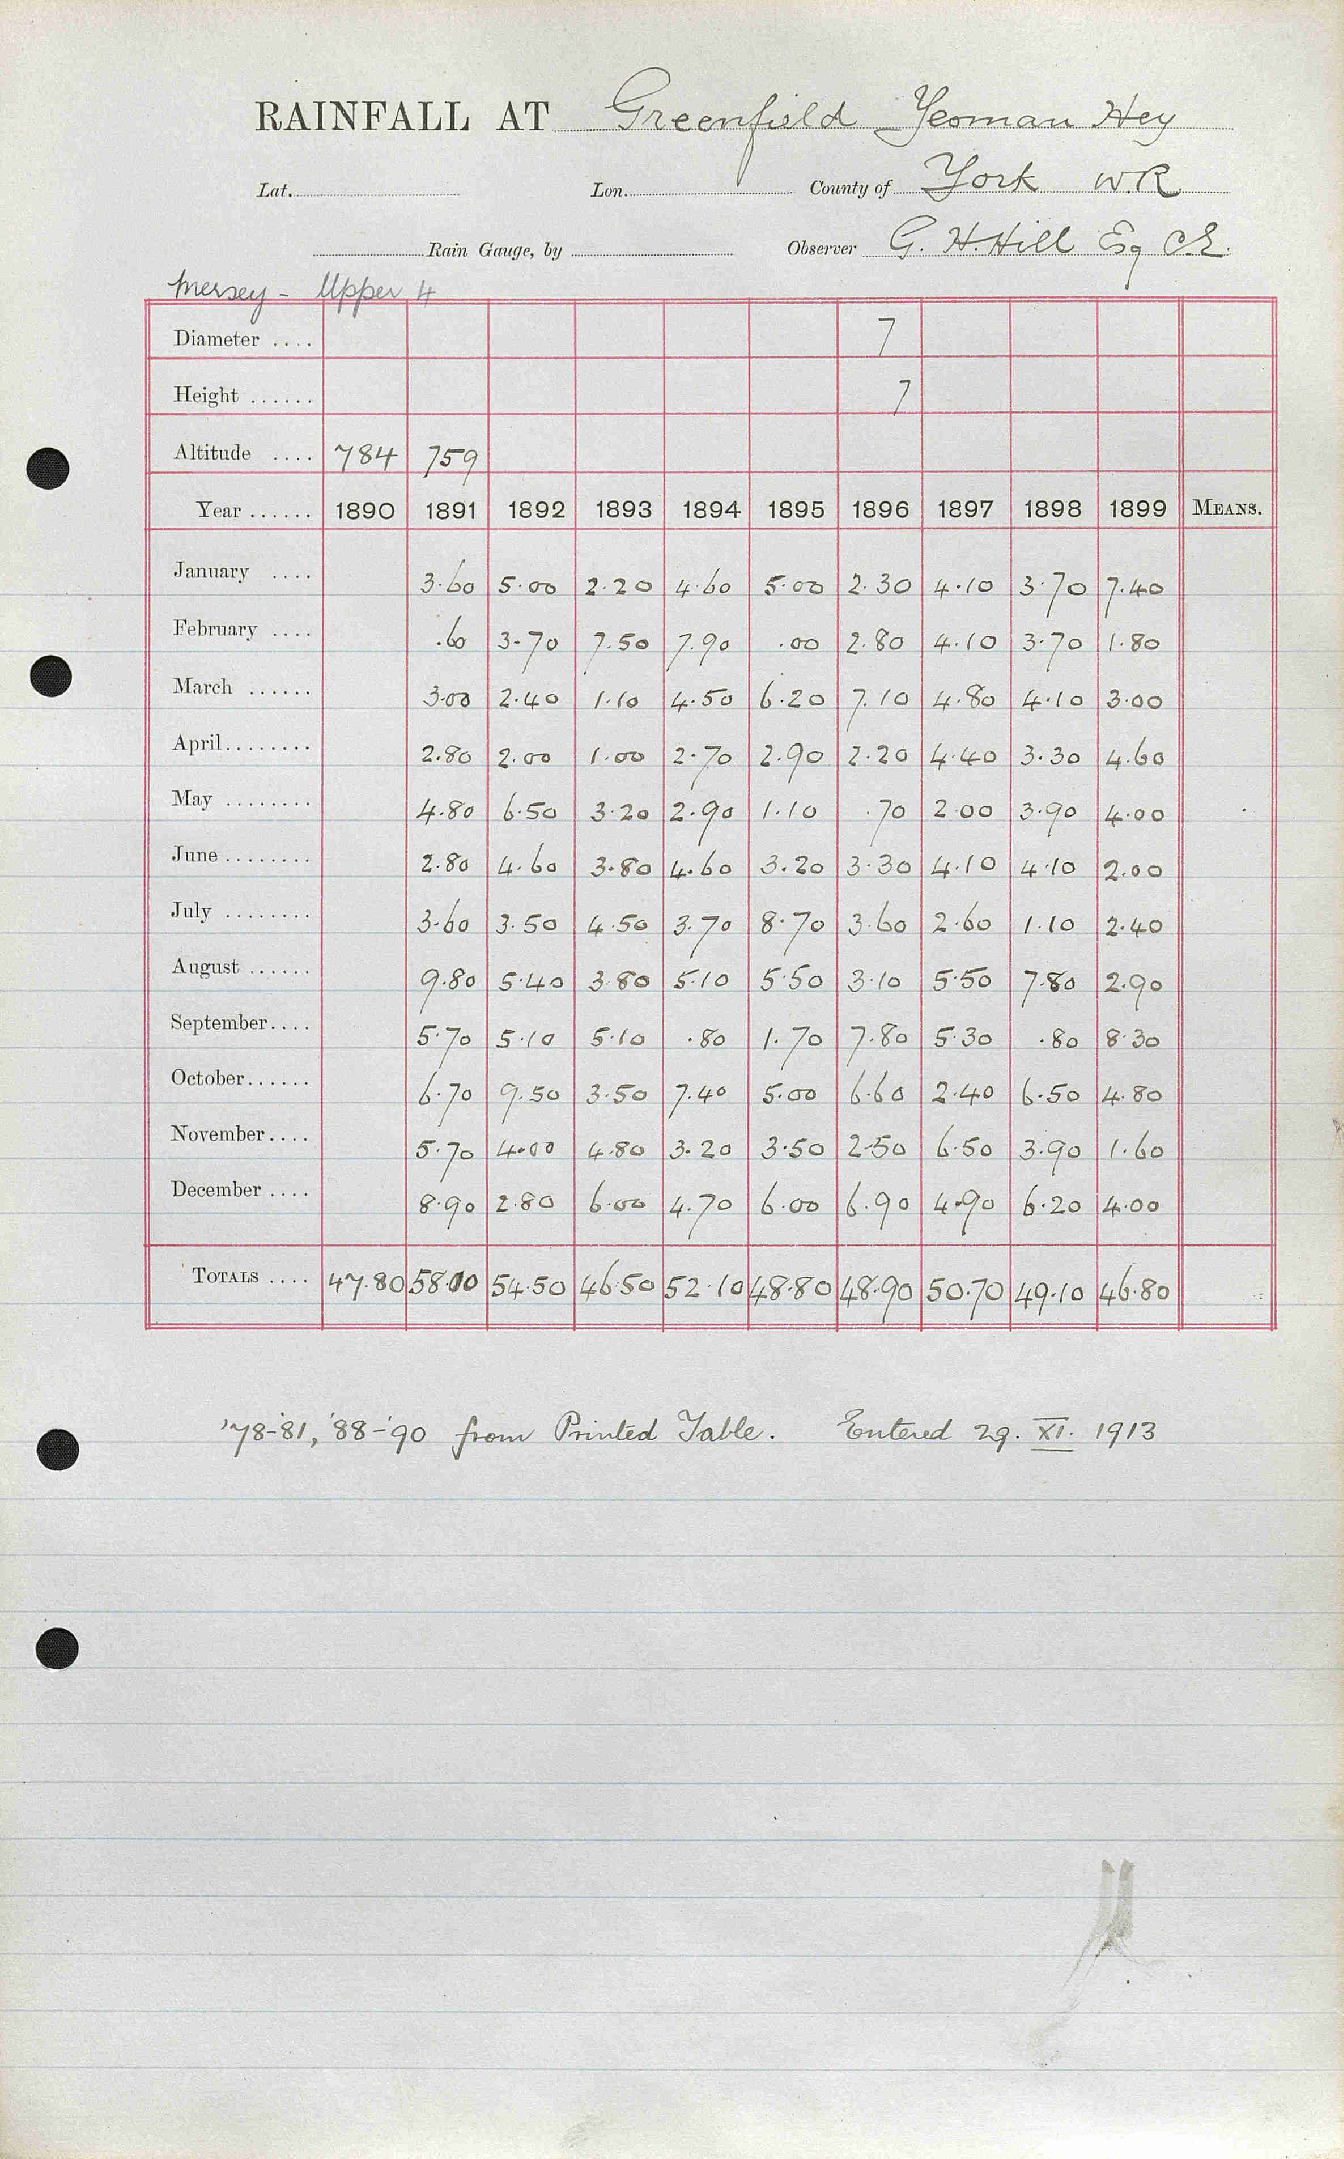 RAINFALL AT Greenfield Yeoman Hey
Lat. Lon. County of York W.R
Rain Gauge, by Observer G. H. Hill Esq C.E.
Mersey - Upper 4
Diameter .... 7
Height ...... 7
Altitude .... 784 759
Year ...... 1890 1891 1892 1893 1894 1895 1896 1897 1898 1899 MEANS.
January .... 3.60 5.00 2.20 4.60 5.00 2.30 4.10 3.70 7.40
February .... .60 3.70 7.50 7.90 .00 2.80 4.10 3.70 1.80
March ...... 3.00 2.40 1.10 4.50 6.20 7.10 4.80 4.10 3.00
April........ 2.80 2.00 1.00 2.70 2.90 2.20 4.40 3.30 4.60
May ........ 4.80 6.50 3.20 2.90 1.10 .70 2.00 3.90 4.00
June ........ 2.80 4.60 3.80 4.60 3.20 3.30 4.10 4.10 2.00
July ........ 3.60 3.50 4.50 3.70 8.70 3.60 2.60 1.10 2.40
August ...... 9.80 5.40 3.80 5.10 5.50 3.10 5.50 7.80 2.90
September.... 5.70 5.10 5.10 .80 1.70 7.80 5.30 .80 8.30
October...... 6.70 9.50 3.50 7.40 5.00 6.60 2.40 6.50 4.80
November.... 5.70 4.00 4.80 3.20 3.50 2.50 6.50 3.90 1.60
December .... 8.90 2.80 6.00 4.70 6.00 6.90 4.90 6.20 4.00
TOTALS .... 47.80 58.00 54.50 46.50 52.10 48.80 48.90 50.70 49.10 46.80
'78-'81, '88-'90 from Printed Table. Entered 29. XI. 1913